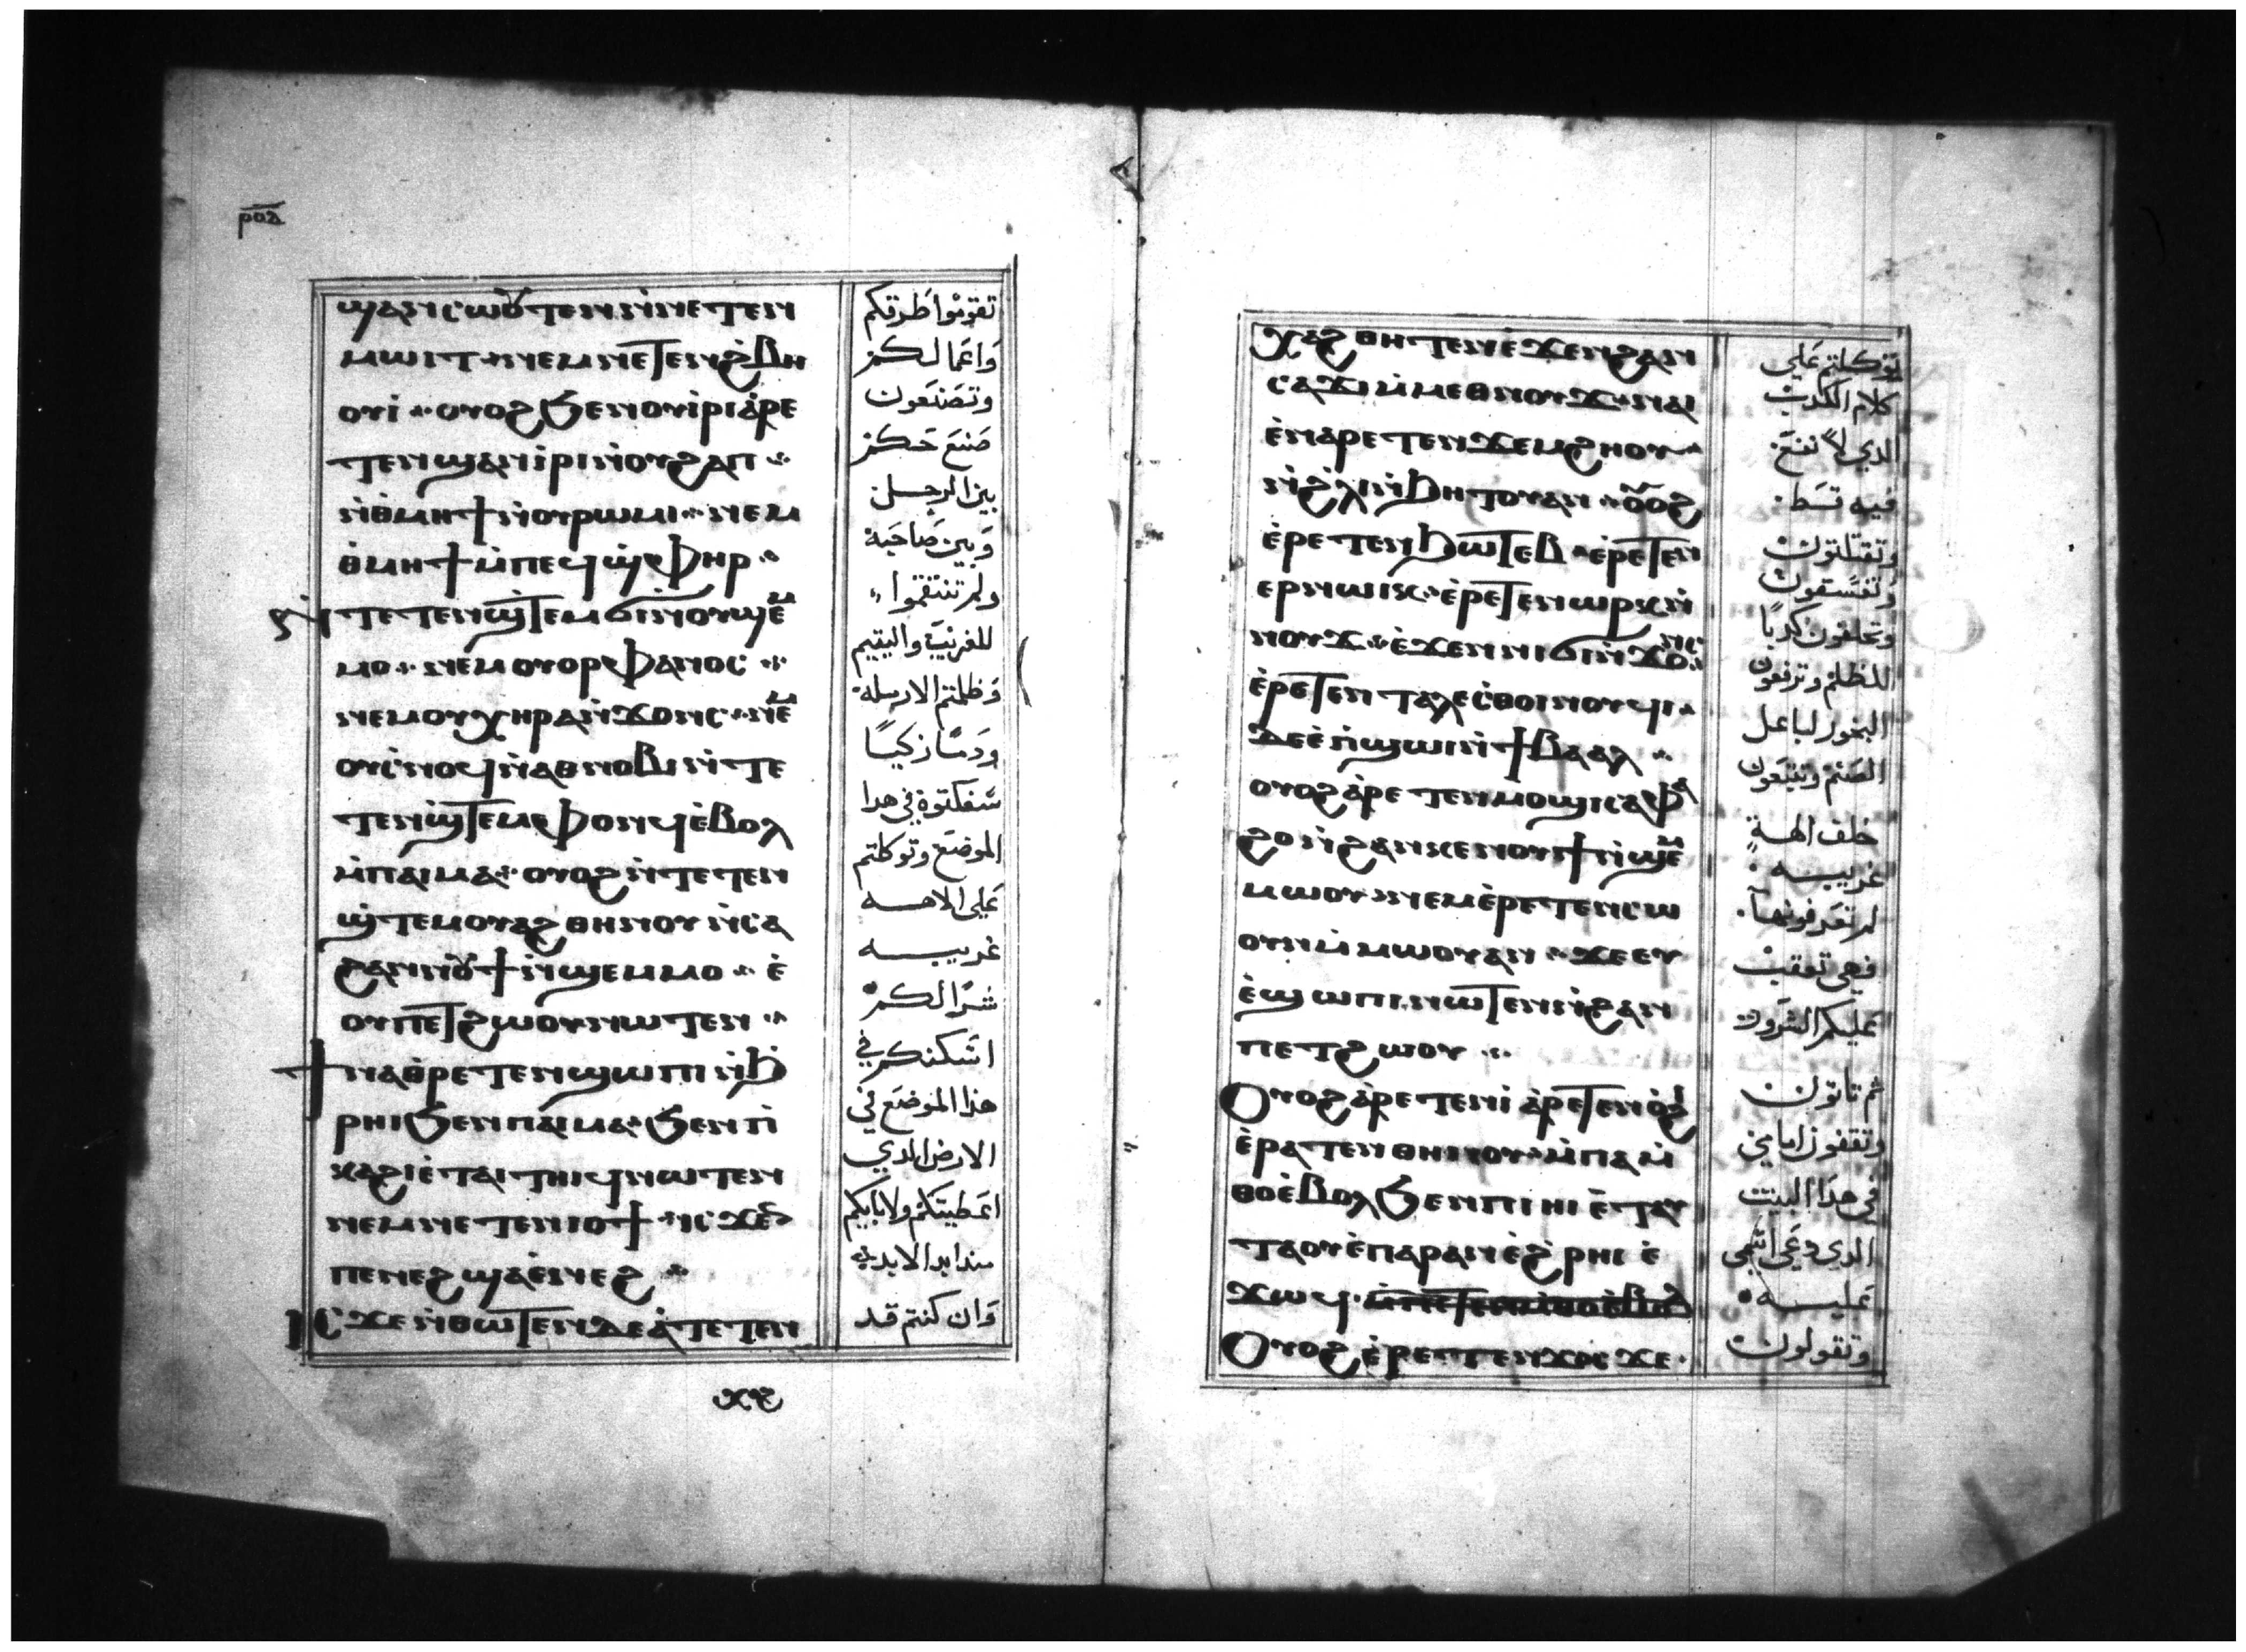 ⲣⲟⲇ
ϣⲁⲛⲥⲱⲟⲩⲧⲉⲛ ⲛ̀ⲛⲉⲧⲉⲛ
ⲙⲱⲓⲧ ⲛⲉⲙ ⲛⲉⲧⲉⲛϩ̀ⲃⲏ
ⲟⲩⲓ̀ ⲟⲩⲟϩ ϧⲉⲛ ⲟⲩⲓ̀ⲣⲓ ⲁ̀ⲣⲉ
ⲧⲉⲛϣⲁⲛⲓ̀ⲣⲓ ⲛ̀ⲟⲩϩⲁⲡ
ⲛ̀ⲑⲙⲏϯ ⲛ̀ⲟⲩⲣⲱⲙⲓ ⲛⲉⲙ
ⲑ̀ⲙⲏϯ ⲙ̀ⲡⲉϥϣ̀ⲫⲏⲣ
ⲛ̀ⲧⲉⲧⲉⲛϣ̀ⲧⲉⲙϭⲓⲛ̀ⲟⲩϣⲉⲙ
ⲙⲟ ⲛⲉⲙ ⲟⲩⲟⲣⲫⲁⲛⲟⲥ
ⲛⲉⲙ ⲟⲩⲭⲏⲣⲁ ⲛ̀ϫⲟⲛⲥ ⲛⲉⲙ
ⲟⲩⲥ̀ⲛⲟϥ ⲛ̀ⲁⲑⲛⲟⲃⲓ ⲛ̀ⲧⲉ
ⲧⲉⲛϣ̀ⲧⲉⲙⲫⲟⲛϥ ⲉ̀ⲃⲟⲗ
ⲙ̀ⲡⲁⲓⲙⲁ ⲟⲩⲟϩ ⲛ̀ⲧⲉⲧⲉⲛ
ϣ̀ⲧⲉⲙⲟⲩⲁϩ ⲑⲏⲛⲟⲩ ⲛ̀ⲥⲁ
ϩⲁⲛⲛⲟⲩϯ ⲛ̀ϣⲉⲙⲙⲟ ⲉ̀
ⲟⲩⲡⲉⲧϩⲱⲟⲩ ⲛⲱⲧⲉⲛ
ϯⲛⲁⲑ̀ⲣⲉⲧⲉⲛϣⲱⲡⲓ ⲛ̀ϧ
ⲣⲏⲓ ϧⲉⲛ ⲡⲁⲓⲙⲁ ϧⲉⲛ ⲡⲓ̀
ⲕⲁϩⲓ ⲉ̀ⲧⲁⲓⲧⲏⲓϥ ⲛⲱⲧⲉⲛ
ⲛⲉⲙ ⲛⲉⲧⲉⲛⲓⲟϯ ⲓⲥϫⲉⲛ
ⲡⲉⲛⲉϩ ϣⲁ ⲉ̀ⲛⲉϩ
ⲓⲥϫⲉ ⲛ̀ⲑⲱⲧⲉⲛ ⲇⲉ ⲁ̀ⲧⲉⲧⲉⲛ
تقومْوا طرقكم
وَاعمَالكم
وتصَنعَون
صَنعَ حَكم
بين الرجل
وَبين صَاحبَه
ولم تنتقموا
للغريبَ واليتيم
وَظلمتم الارمله
ودَمًا زكيًا
سَفكتوه في هدا
الموضعَ وتوكلتم
عَلى الاهه
غريبه
شرًا لكم
اسَكنكم في
هذا الموضعَ في
الارض الدي
اعَطيتكم ولابايكم
مند ابد الابديه
وَان كنتم قد
ⲭⲁϩ ⲑⲏⲧⲉⲛ ⲉ̀ϫⲉⲛ ϩⲁⲛ
ⲥⲁϫⲓ ⲙ̀ⲙⲉⲑⲛⲟⲩϫ ⲛⲁⲓ
ⲉ̀ⲛⲁⲣⲉⲧⲉⲛϫⲉⲙϩⲏⲟⲩ
ⲛ̀ϩ̀ⲗⲓ ⲛ̀ϧⲏⲧⲟⲩ ⲁⲛ ⲟⲩⲟϩ
ⲉ̀ⲣⲉⲧⲉⲛϧⲱⲧⲉⲃ ⲉ̀ⲣⲉⲧⲉⲛ
ⲉⲣⲛⲱⲓⲕ ⲉ̀ⲣⲉⲧⲉⲛⲱⲣⲕ ⲛ̀
ⲛⲟⲩϫ ⲉ̀ϫⲉⲛ ⲛⲓϭⲓⲛ̀ϫⲟⲛⲥ
ⲉ̀ⲣⲉⲧⲉⲛⲧⲁⲗⲉⲥ̀ⲑⲟⲓⲛⲟⲩϥⲓ
ⲇⲉ ⲉ̀ⲡ̀ϣⲱⲓ ⲛ̀ϯⲃⲁⲁⲗ
ⲟⲩⲟϩ ⲁ̀ⲣⲉⲧⲉⲛⲙⲟϣⲓ ⲥⲁⲫⲁ
ϩⲟ ⲛ̀ϩⲁⲛⲕⲉⲛⲟⲩϯ ⲛ̀ϣⲉⲙ
ⲙⲱⲟⲩ ⲛⲉⲙ ⲉ̀ⲣⲉⲧⲉⲛⲥⲱ
ⲟⲩⲛ ⲙ̀ⲙⲱⲟⲩ ⲁⲛ ϫⲉ ⲉⲩ
ⲉ̀ϣⲱⲡⲓ ⲛⲱⲧⲉⲛ ⲛ̀ϩⲁⲛ
ⲡⲉⲧϩⲱⲟⲩ
Ⲟⲩⲟϩ ⲁ̀ⲣⲉⲧⲉⲛⲓ̀ ⲁ̀ⲣⲉⲧⲉⲛⲟ̀ϩⲓ
ⲉ̀ⲣⲁⲧⲉⲛⲑⲏⲛⲟⲩ ⲙ̀ⲡⲁⲙ̀
ⲑⲟ ⲉ̀ⲃⲟⲗ ϧⲉⲛ ⲡⲓⲏⲓ ⲉ̀ⲧⲁⲩ
ⲧⲁⲟⲩⲉ̀ ⲡⲁⲣⲁⲛ ⲉ̀ϩ̀ⲣⲏⲓ ⲉ̀
ϫⲱϥ
Ⲟⲩⲟϩ ⲉ̀ⲣⲉⲧⲉⲛϫⲟⲥ ϫⲉ
توكلتم عَلى
كلام الكدب
الدي لا تنفعَ
فيه قسَط
وتقتلون
وتفسَقون
وتحلفون كدبًا
للظلم وترفعون
البخور لباعل
الصَنم وتتبعَون
خلف الهةٍ
غريبه
لم تعَرفونها
فهي توقب
عَليكم الشرور
ثم تاتون
وتقفون امامي
في هدَا البيت
الدي دعَي اسَمى
عَليه
وتقولون